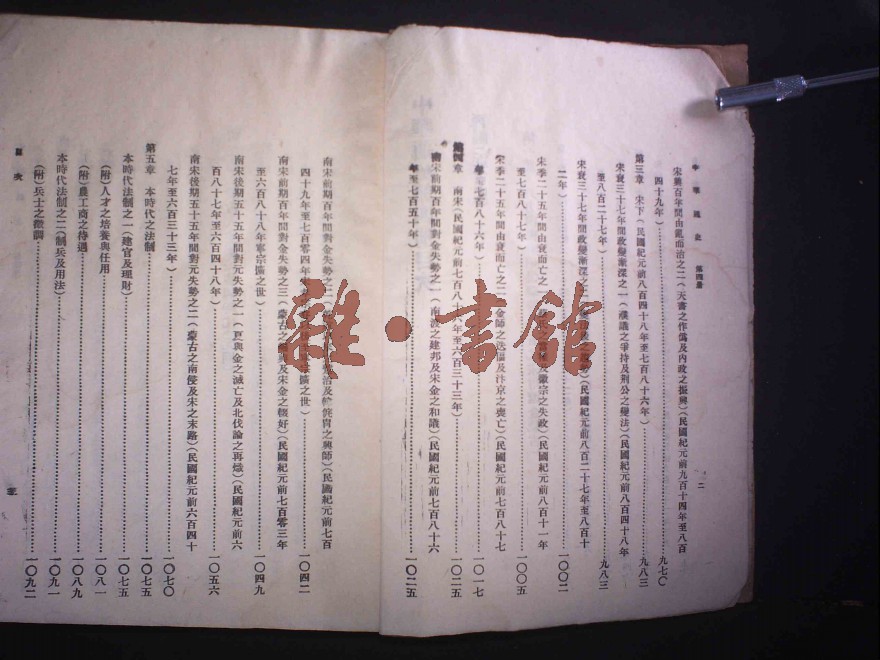 中華通史 第四册 二
宋興百年間由亂而治之二（天書之作僞及內政之振興）（民國紀元前九百十四年至八百
四十九年）……九七〇
第三章 宋下（民國紀元前八百四十八年至七百八十六年）……九八三
宋衰三十七年間政變漸深之一（濮議之爭持及荆公之變法）（民國紀元前八百四十八年
至八百二十七年）……九八三
宋衰三十七年間政變漸深之（民國紀元前八百二十七年至八百十
二年）……一〇〇二
宋季二十五年間由衰而亡之一（及徽宗之失政）（民國紀元前八百十一年
至七百八十七年）……一〇〇五
宋季二十五年間由衰而亡之二（金師之迭逼及汴京之喪亡）（民國紀元前七百八十七
年至七百八十六年）……一〇一七
第四章 南宋（民國紀元前七百八十年至六百三十三年）……一〇二五
南宋前期百年間對金失勢之一（南渡之建邦及宋金之和議）（民國紀元前七百八十六
年至七百五十年）……一〇二五
南宋前期百年間對金失勢之二（及韓侂胄之興師）（民國紀元前七百
四十九年至七百零四年寧宗之世）……一〇四二
南宋前期百年間對金失勢之三（蒙古之及宋金之輟好）（民國紀元前七百零三年
至六百八十八年寧宗之世）……一〇四九
南宋後期五十五年間對元失勢之一（夏與金之滅亡及北伐論之再熾）（民國紀元前六
百八十七年至六百四十八年）……一〇五六
南宋後期五十五年間對元失勢之二（蒙古之南侵及宋之末路）（民國紀元前六百四十
七年至六百三十三年）……一〇七〇
第五章 本時代之法制……一〇七五
本時代法制之一（建官及理財）……一〇七五
（附）人才之培養與任用……一〇八一
（附）農工商之待遇……一〇八九
本時代法制之二（制兵及用法）……一〇九一
（附）兵士之徵調……一〇九二
目次 三
雜·書館